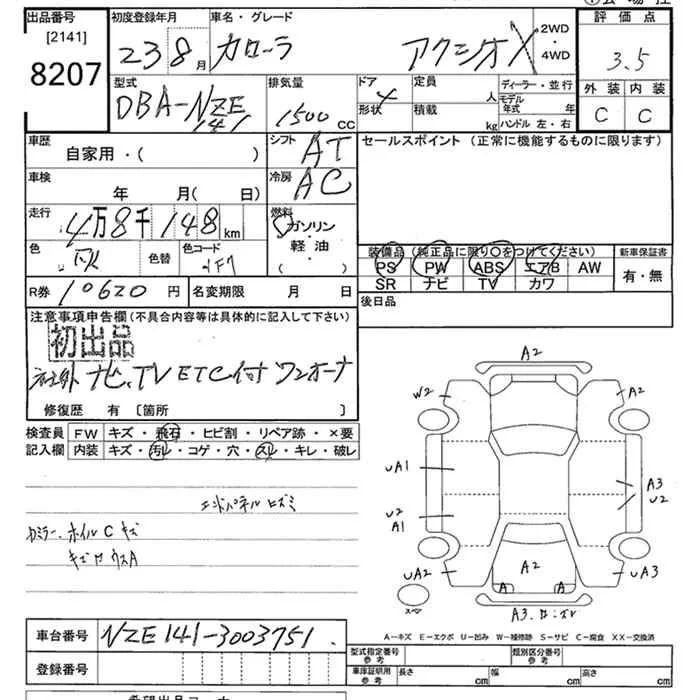 出品番号 初度登録年月 車名・グレード 評価点
[2141]
8207
23 8月 カローラ アクシオX 2WD・4WD 3.5
型式 排気量 ドア 定員 人 ディーラー・並行 外装 内装
DBA-NZE141 1500cc 4 形状 積載 kg モデル年式 年 C C
ハンドル 左・右
車歴 シフト セールスポイント (正常に機能するものに限ります)
自家用・( ) AT
車検 冷房
年 月( 日) AC
走行 燃料
4万8千148km ガソリン
軽・油
( )
色 色替 色コード 装備品 (純正品に限り○をつけてください) 新車保証書
1F7 PS PW ABS エアB AW 有・無
SR ナビ TV カワ
R券 10620円 名変期限 月 日 後日品
注意事項申告欄 (不具合内容等は具体的に記入して下さい)
初出品
社外ナビ、TV ETC付 ワンオーナ
修復歴 有 [箇所 ]
検査員 FW キズ・飛石・ヒビ割・リペア跡・×要
記入欄 内装 キズ・汚レ・コゲ・穴・スレ・キレ・破レ
エンドパネルヒズミ
ホイルCキズ
A2
W2 A2
UA1 A3
U2
U2
A1
UA2 A2 UA3
A A
スペア A3.
A-キズ E-エクボ U-凹み W-補修跡 S-サビ C-腐食 XX-交換済
車台番号 NZE141-3003751
登録番号
型式指定番号 参考 類別区分番号 参考
車庫証明用 参考 長さ cm 幅 cm 高さ cm